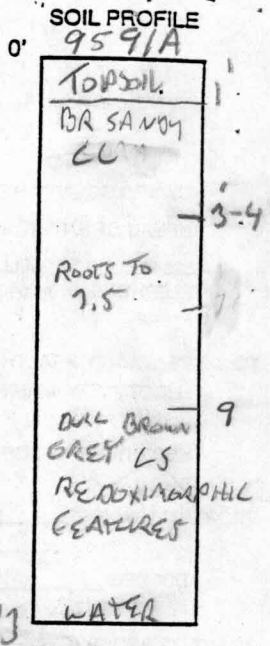 SOIL PROFILE
0' 9591A
TOPSOIL 1'
BR SANDY
CL
3-4'
ROOTS TO
7.5 7
9
BROWN
GREY LS
REDOXIMORPHIC
FEATURES
13 WATER